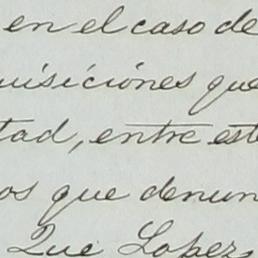 en el caso de
uisiciónes que
tad, entre est
os que denun
Que Lopez